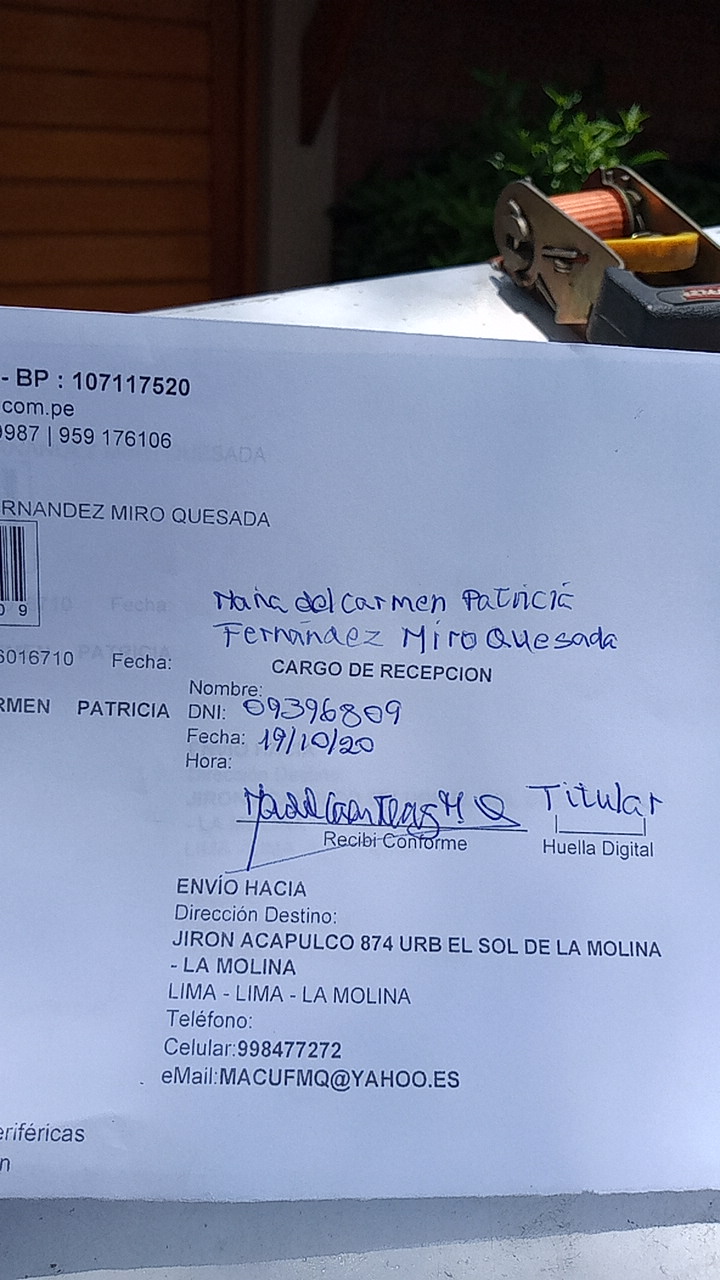 - BP : 107117520
com.pe
9987 | 959 176106
RNANDEZ MIRO QUESADA
0 9
Maria del Carmen Patricia
Fernandez Miro Quesada
6016710 Fecha:
CARGO DE RECEPCION
RMEN PATRICIA
Nombre:
DNI: 09396809
Fecha: 19/10/20
Hora:
Titular
Recibi Conforme
Huella Digital
ENVÍO HACIA
Dirección Destino:
JIRON ACAPULCO 874 URB EL SOL DE LA MOLINA
- LA MOLINA
LIMA - LIMA - LA MOLINA
Teléfono:
Celular:998477272
eMail:MACUFMQ@YAHOO.ES
eriféricas
n